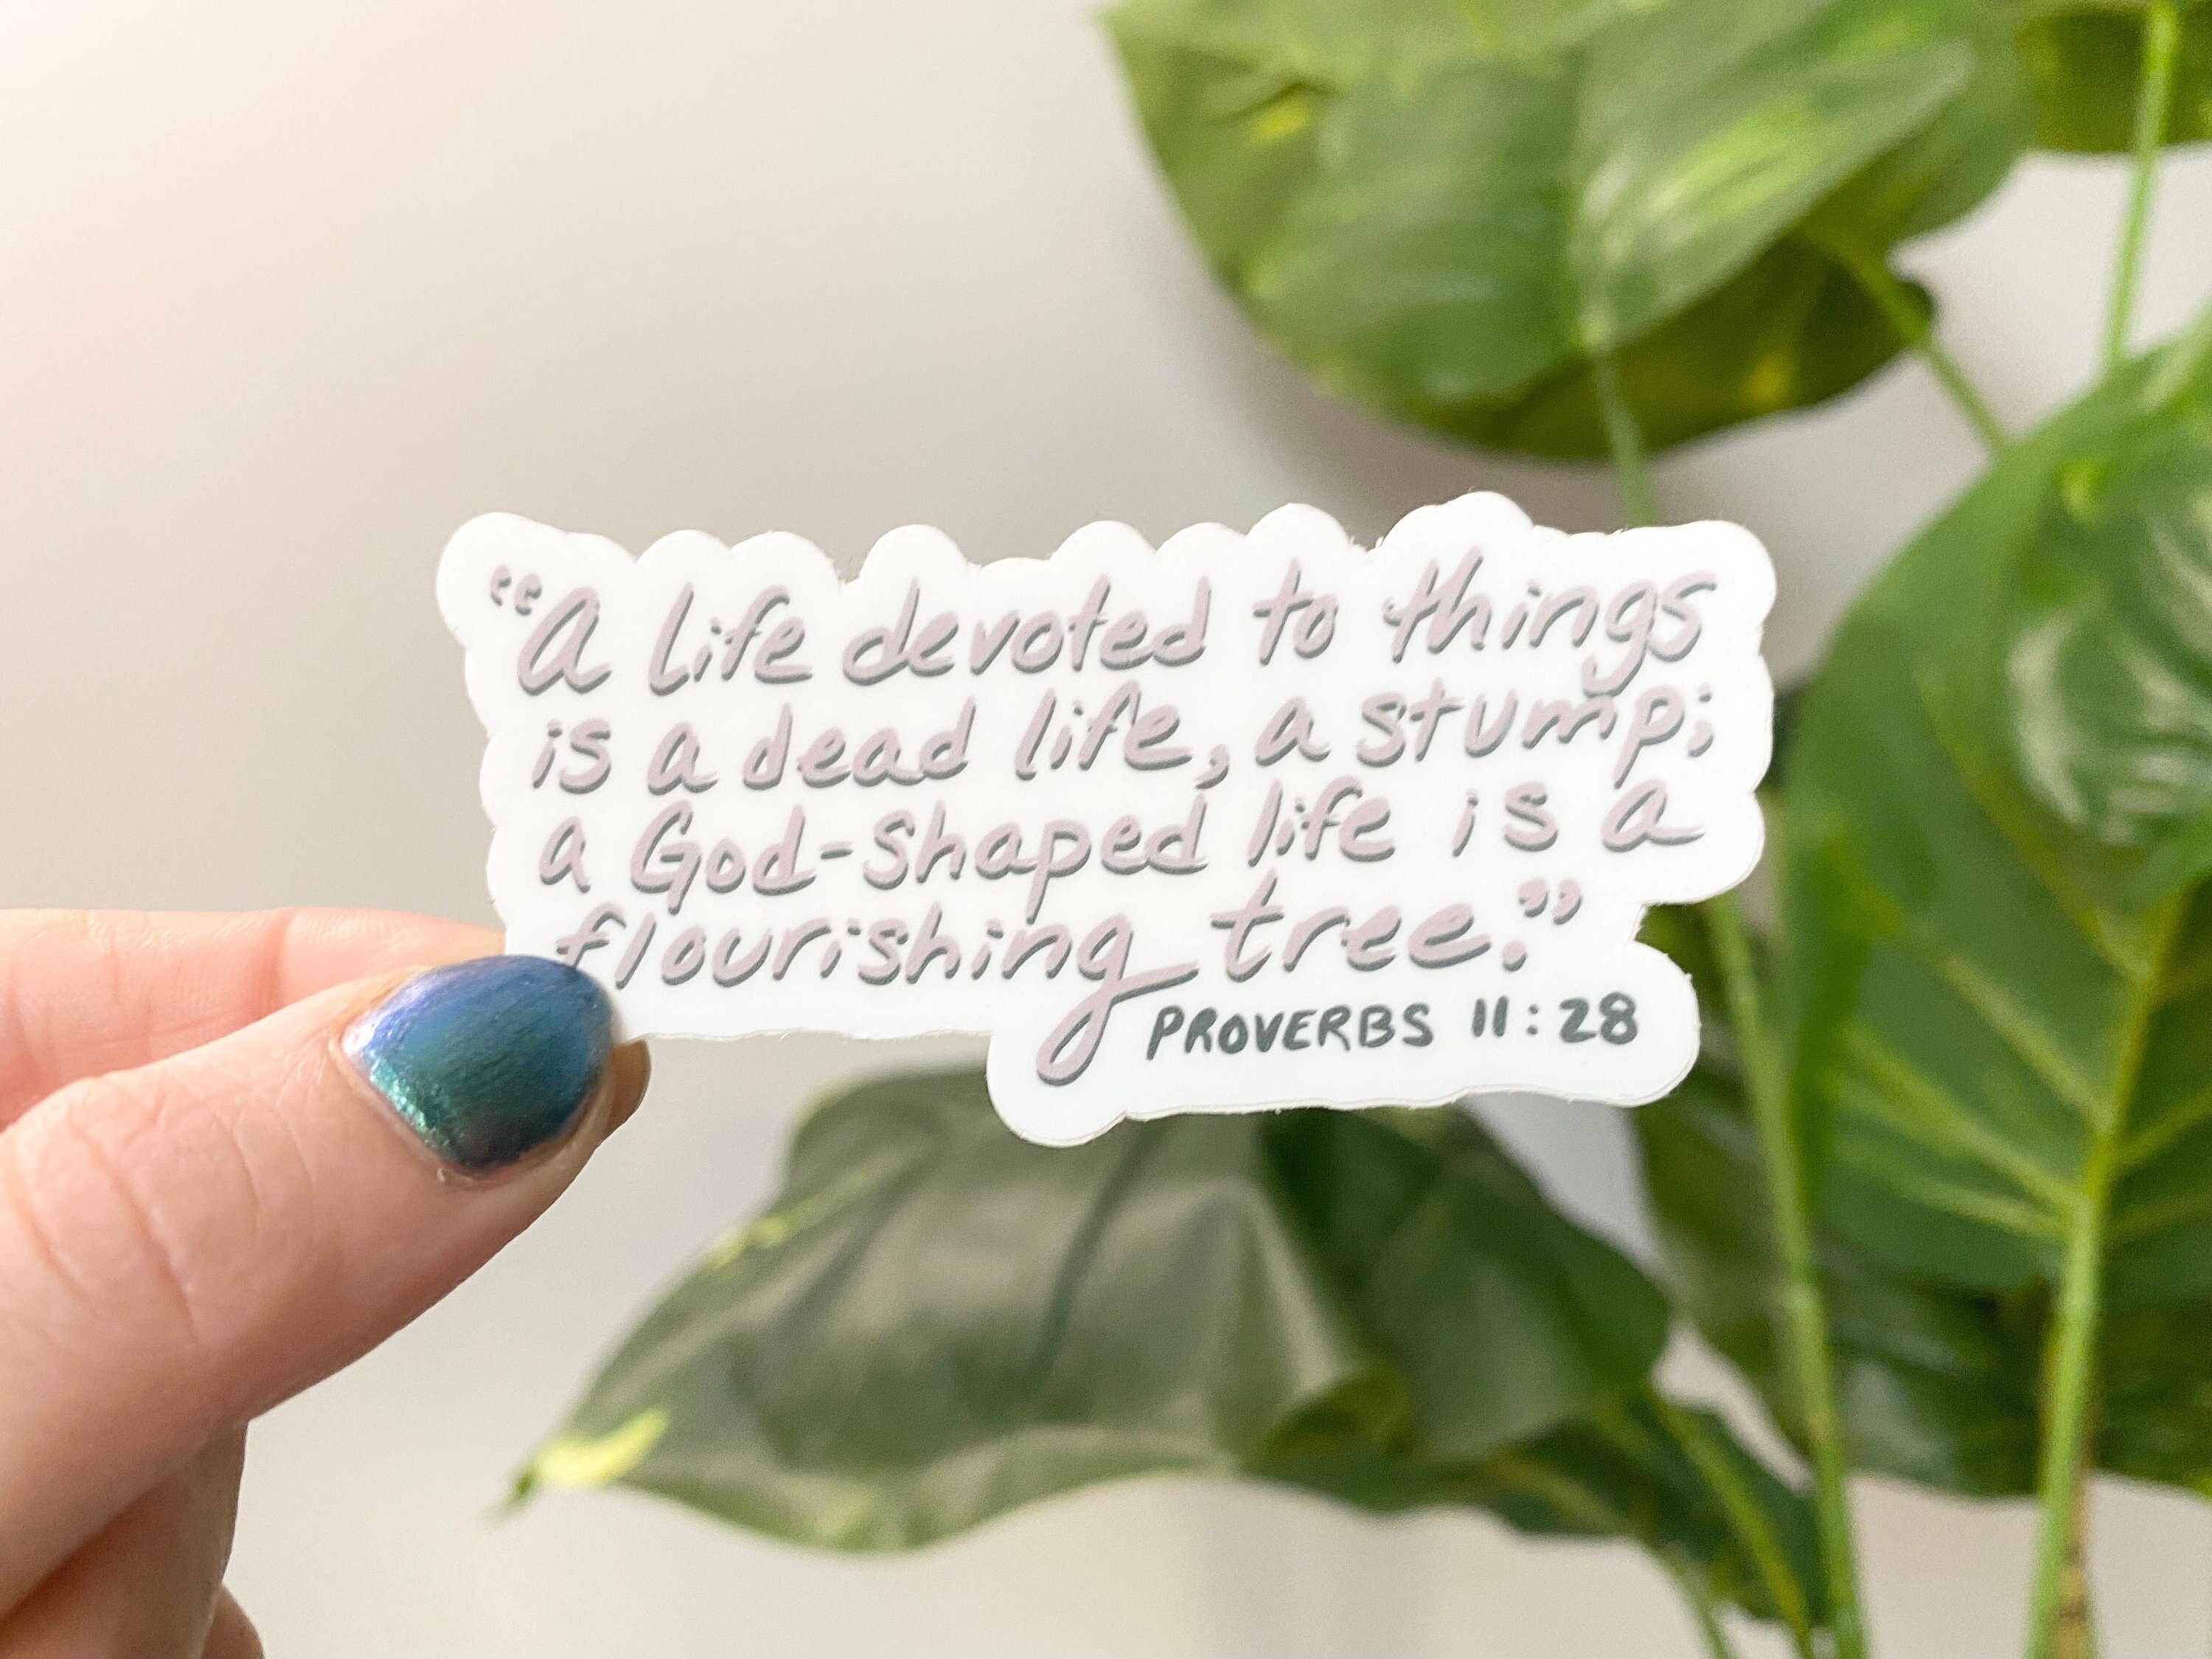 “A life devoted to things
is a dead life, a stump;
a God-shaped life is a
flourishing tree.”
PROVERBS 11:28